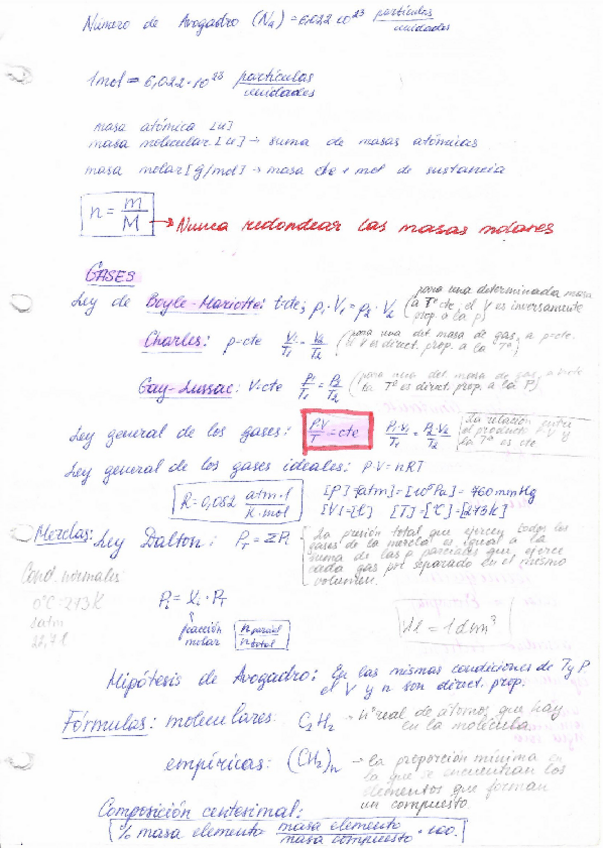 Número de Avogadro (N_A) = 6,022·10²³ partículas/unidades
1 mol = 6,022·10²³ partículas/unidades
masa atómica [u]
masa molecular [u] → suma de masas atómicas
masa molar [g/mol] → masa de 1 mol de sustancia
n = m/M → Nunca redondear las masas molares
GASES
Ley de Boyle-Mariotte: t=cte; p₁·V₁ = p₂·V₂ (para una determinada masa
a Tª cte, el V es inversamente
prop. a la p)
Charles: p=cte V₁/T₁ = V₂/T₂ (para una det masa de gas, a p=cte.
el V es direct. prop. a la Tª)
Gay-Lussac: V=cte P₁/T₁ = P₂/T₂ (para una det masa de gas, a V=cte
la Tª es direct. prop. a la P)
Ley general de los gases: P·V/T = cte P₁·V₁/T₁ = P₂·V₂/T₂ La relación entre
el producto P V y
la Tª es cte
Ley general de los gases ideales: P·V = nRT
R = 0,082 atm·l/K·mol [P] = [atm] = [10⁵Pa] = 760 mmHg
[V] = [l] [T] = [ºC] = [273K]
Mezclas: Ley Dalton: P_T = ΣPᵢ
La presión total que ejercen todos los
gases de la mezcla es igual a la
suma de las p parciales que ejerce
cada gas por separado en el mismo
volumen.
Cond. normales
0ºC = 273K
1 atm
Pᵢ = χᵢ · P_T
fracción molar n parcial/n total
1l = 1dm³
Hipótesis de Avogadro: En las mismas condiciones de T y P
el V y n son direct. prop.
Fórmulas: moleculares: C₂H₂ → nº real de átomos que hay
en la molécula.
empíricas: (CH₂)n → la proporción mínima en
la que se encuentran los
elementos que forman
un compuesto.
Composición centesimal:
% masa elemento = masa elemento/masa compuesto · 100.